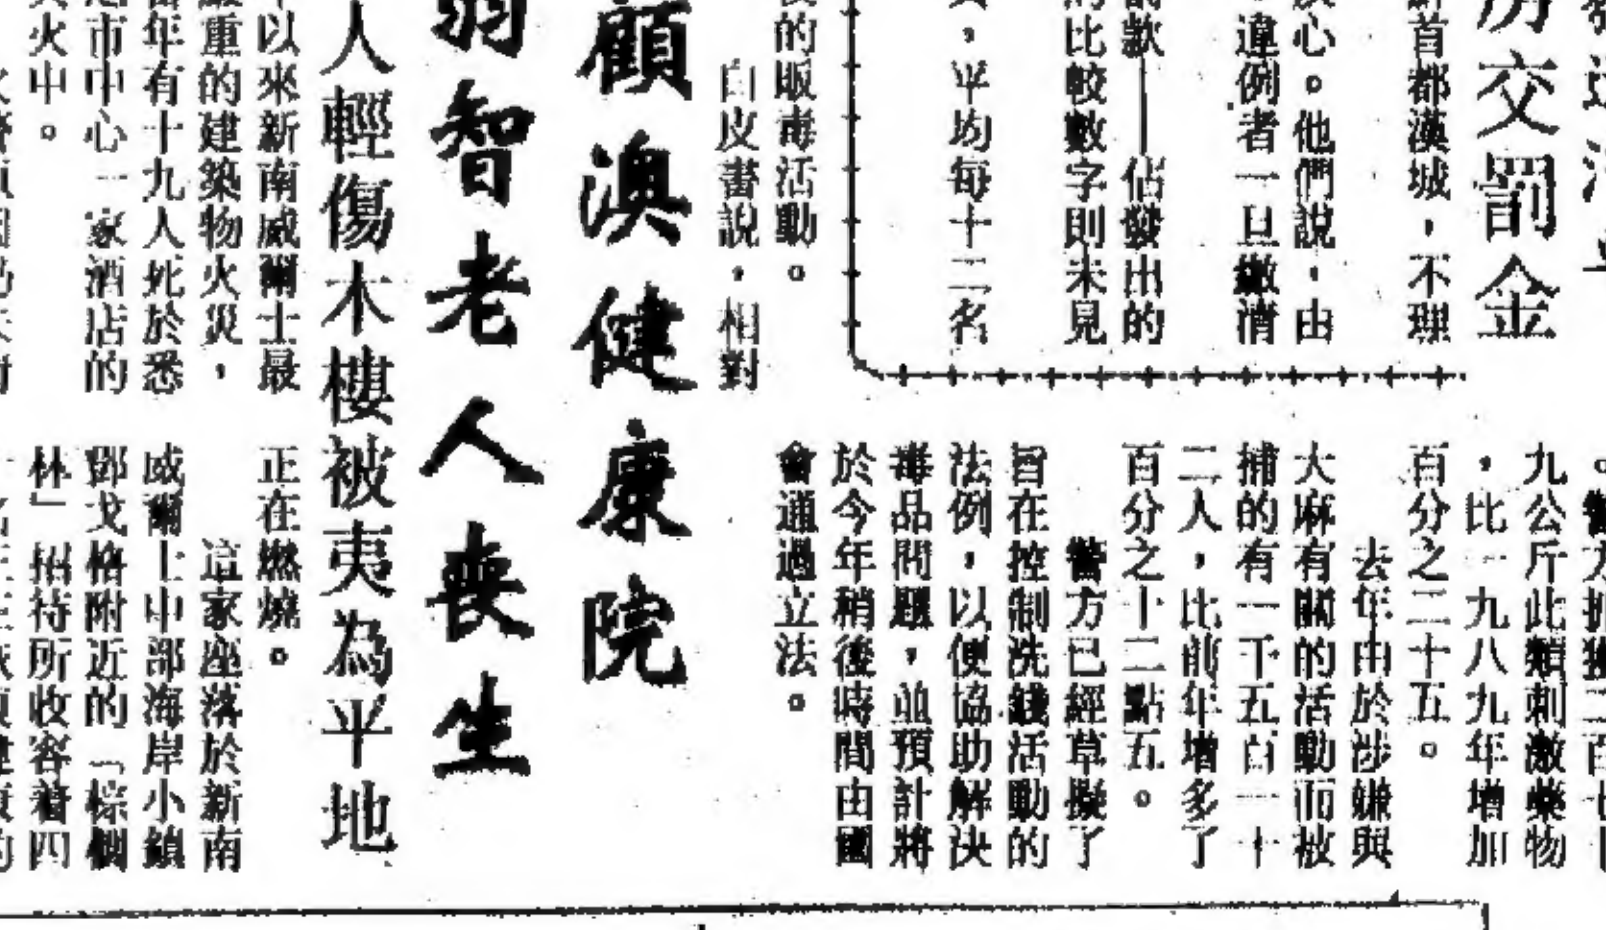 交罰金
首都漢城，不理
心。他們說，由
，違例者一旦繳清
款——佔發出的
的比較數字則未見
，平均每十二名
的販毒活動。
白皮書說，相對
九公斤此類刺激藥物
，比一九八九年增加
百分之二十五。
去年由於涉嫌與
大麻有關的活動而被
捕的有一千五百一十
二人，比前年增多了
百分之十二點五。
警方已經草擬了
旨在控制洗錢活動的
法例，以便協助解決
毒品問題，並預計將
於今年稍後時間由國
會通過立法。
顧澳健康院
弱智老人喪生
人輕傷木樓被夷為平地
年以來新南威爾士最
嚴重的建築物火災，
當年有十九人死於悉
尼市中心一家酒店的
火中。
正在燃燒。
這家座落於新南
威爾士中部海岸小鎮
鄧戈格附近的「棕櫚
林」招待所收容着四